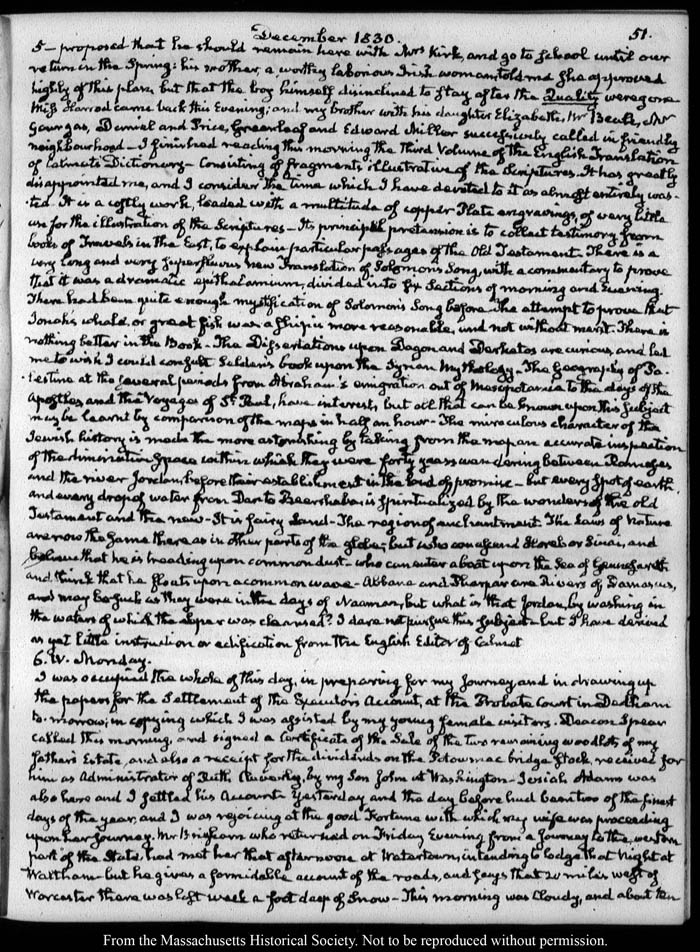 December 1830.
51.
5 — proposed that he should remain here with Mrs Kirk, and go to School until our
return in the Spring: his mother, a worthy laborious Irish woman told me she approved
highly of this plan, but that the boy himself disinclined to stay after the Quality were gone
Miss Harrod came back this Evening; and my brother with his daughter Elizabeth, Mr Beale, Mr
Gourgas, Daniel and Price, Greenleaf and Edward Miller successively called in friendly
neighbourhood — I finished reading this morning the third Volume of the English Translation
of Calmet's Dictionary — Consisting of fragments illustrative of the Scriptures. It has greatly
disappointed me, and I consider the time which I have devoted to it as almost entirely was-
-ted. It is a costly work, loaded with a multitude of copper Plate engravings, of very little
use for the illustration of the Scriptures — Its principal pretension is to collect testimony from
books of Travels in the East, to explain particular passages of the Old Testament. There is a
very long and very superfluous new Translation of Solomon's Song, with a commentary to prove
that it was a dramatic epithalamium, divided into six Sections of morning and Evening.
There had been quite enough mystification of Solomon's Song before. The attempt to prove that
Jonah's whale, or great fish was a ship is more reasonable, and not without merit. There is
nothing better in the Book. The Dissertations upon Dagon and Derketos are curious, and led
me to wish I could consult Selden's book upon the Syrian Mythology. The Geography of Pa-
-lestine at the several periods from Abraham's emigration out of Mesopotamia to the days of the
Apostles, and the Voyages of St. Paul, have interest, but all that can be known upon this subject
may be learnt by comparison of the maps in half an hour. The miraculous character of the
Jewish history is made the more astonishing by taking from the map an accurate inspection
of the diminutive space within which they were forty years wandering between Rameses
and the river Jordan, before their establishment in the land of promise — but every spot of earth
and every drop of water from Dan to Beersheba is spiritualized by the wonders of the old
Testament and the new — It is fairy Land — The region of enchantment. The Laws of Nature
are now the same there as in other parts of the globe; but who can ascend Horeb or Sinai, and
believe that he is treading upon common dust — who can enter a boat upon the Sea of Gennesareth
and think that he floats upon a common wave — Abbana and Pharpar are Rivers of Damascus,
and may be such as they were in the days of Naaman, but what is that Jordan, by washing in
the waters of which the leper was cleansed? I dare not pursue this subject — but I have derived
as yet little instruction or edification from the English Editor of Calmet
6. IV. Monday.
I was occupied the whole of this day, in preparing for my Journey and in drawing up
the papers for the Settlement of the Executor's Account, at the Probate Court in Dedham
to-morrow; in copying which I was assisted by my young female visitors. Deacon Spear
called this morning, and signed a certificate of the Sale of the two remaining woodlots of my
father's Estate, and also a receipt for the dividends on the Potowmac bridge Stock, received for
him as Administrator of Ruth, by my Son John at Washington — Josiah Adams was
also here and I settled his Account. Yesterday and the day before had been two of the finest
days of the year, and I was rejoicing at the good Fortune with which my wife was proceeding
upon her Journey. Mr Brigham who returned on Friday Evening from a Journey to the western
part of the State, had met her that afternoon at Watertown, intending to lodge that Night at
Waltham — but he gives a formidable account of the roads, and says that 20 miles west of
Worcester there was last week a foot deep of Snow — This morning was Cloudy, and about ten
From the Massachusetts Historical Society. Not to be reproduced without permission.